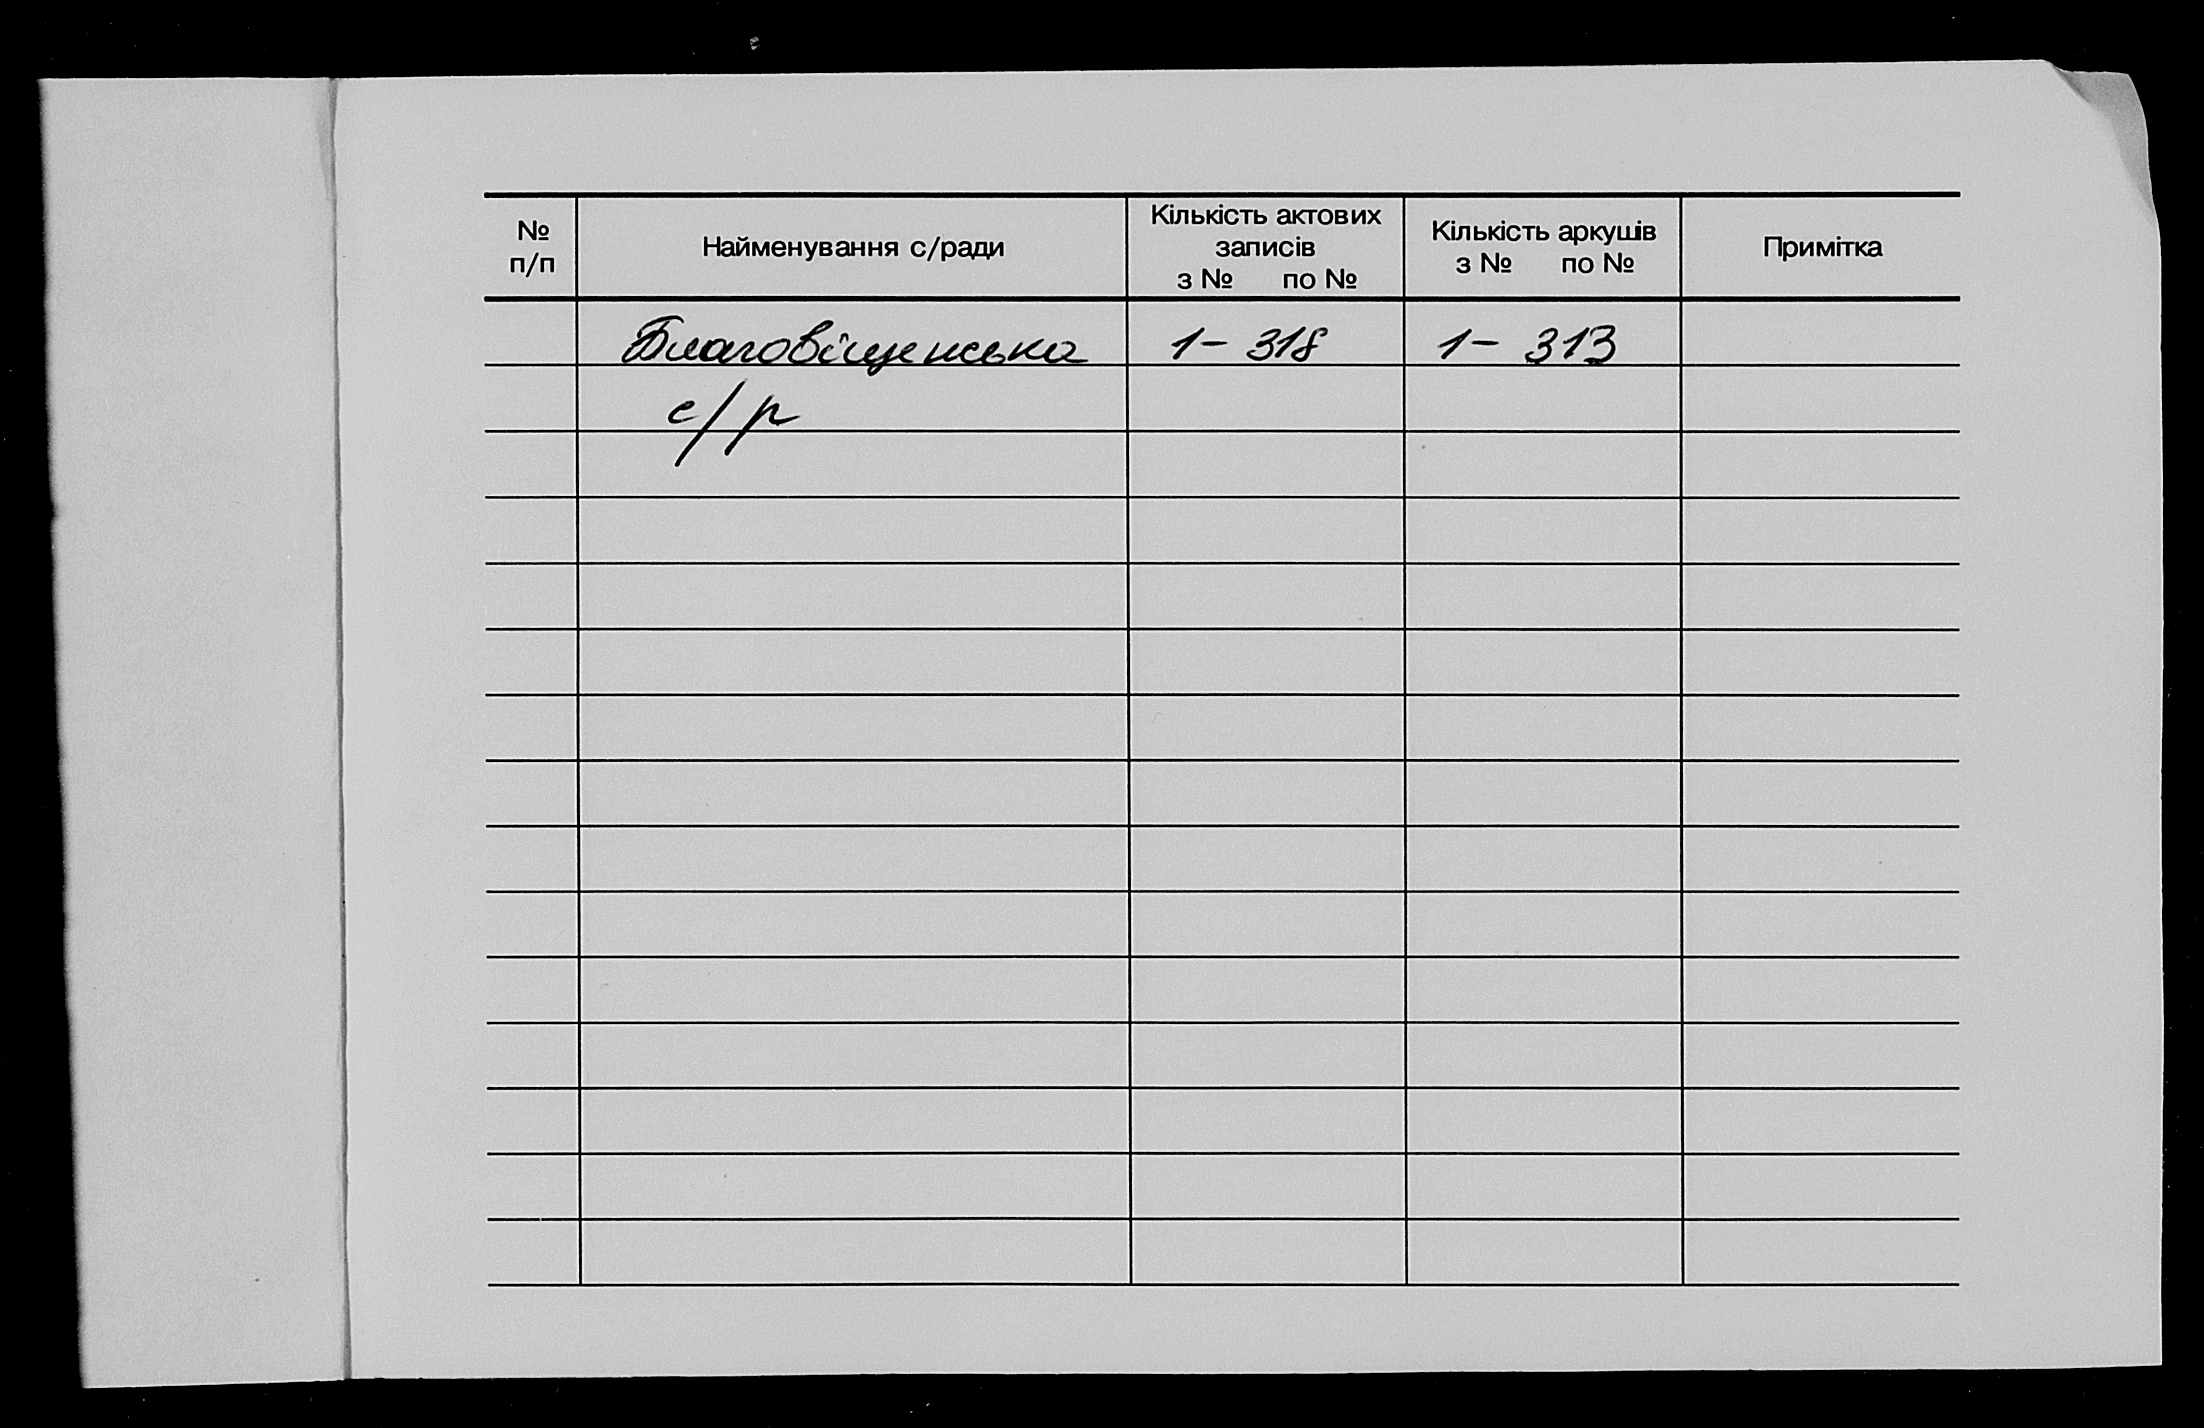 № п/п Найменування с/ради Кількість актових записів з № по № Кількість аркушів з № по № Примітка
Благовіщенська 1- 318 1- 313
с/р